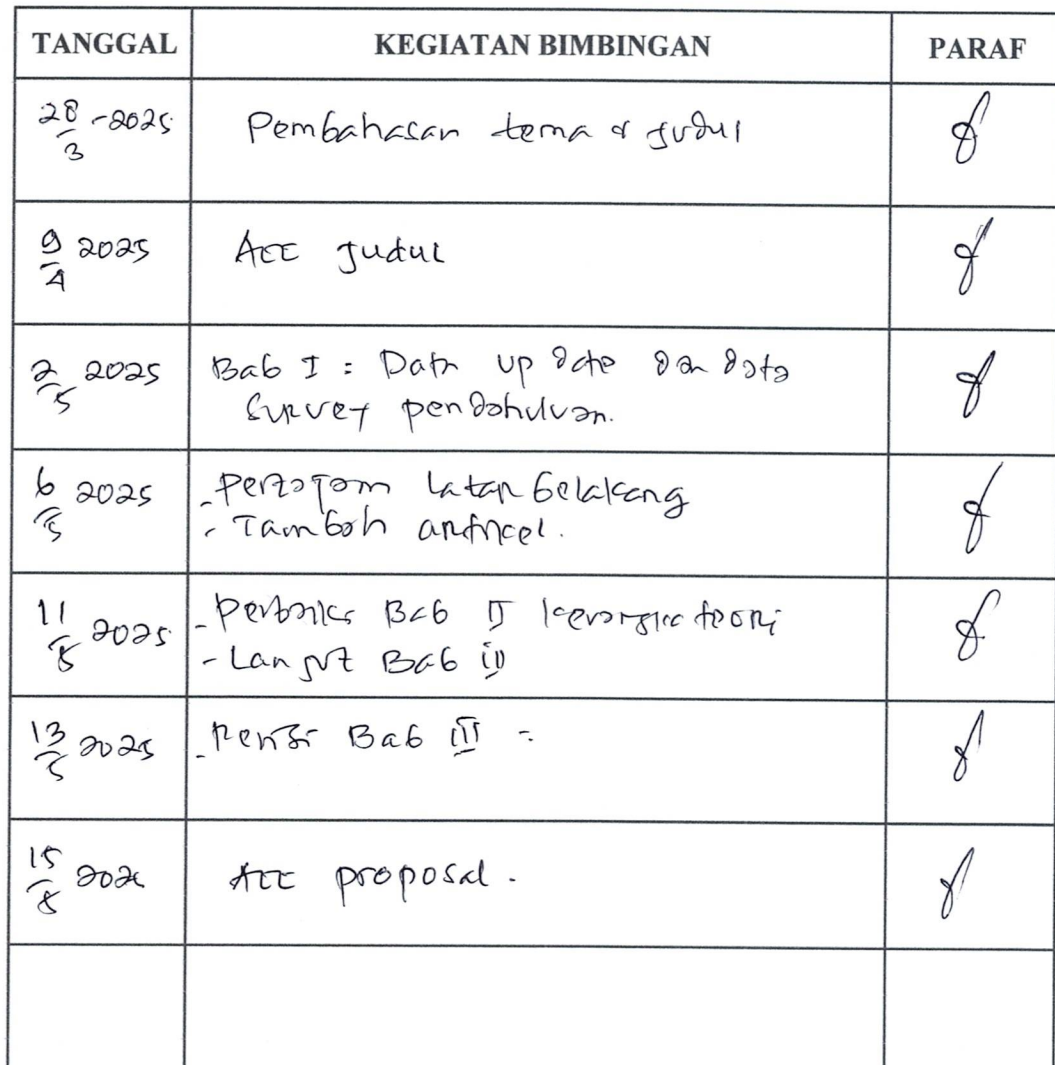 TANGGAL KEGIATAN BIMBINGAN PARAF
28/3 - 2025 Pembahasan tema & judul
9/4 2025 Acc Judul
2/5 2025 Bab I : Data up date dan data
survey pendahuluan.
6/5 2025 - Pertajam Latar belakang
- Tambah artikel.
11/5 2025 - Perbaiki Bab II kerangka teori
- Lanjut Bab III
13/5 2025 - Revisi Bab III -
15/5 2025 Acc proposal.